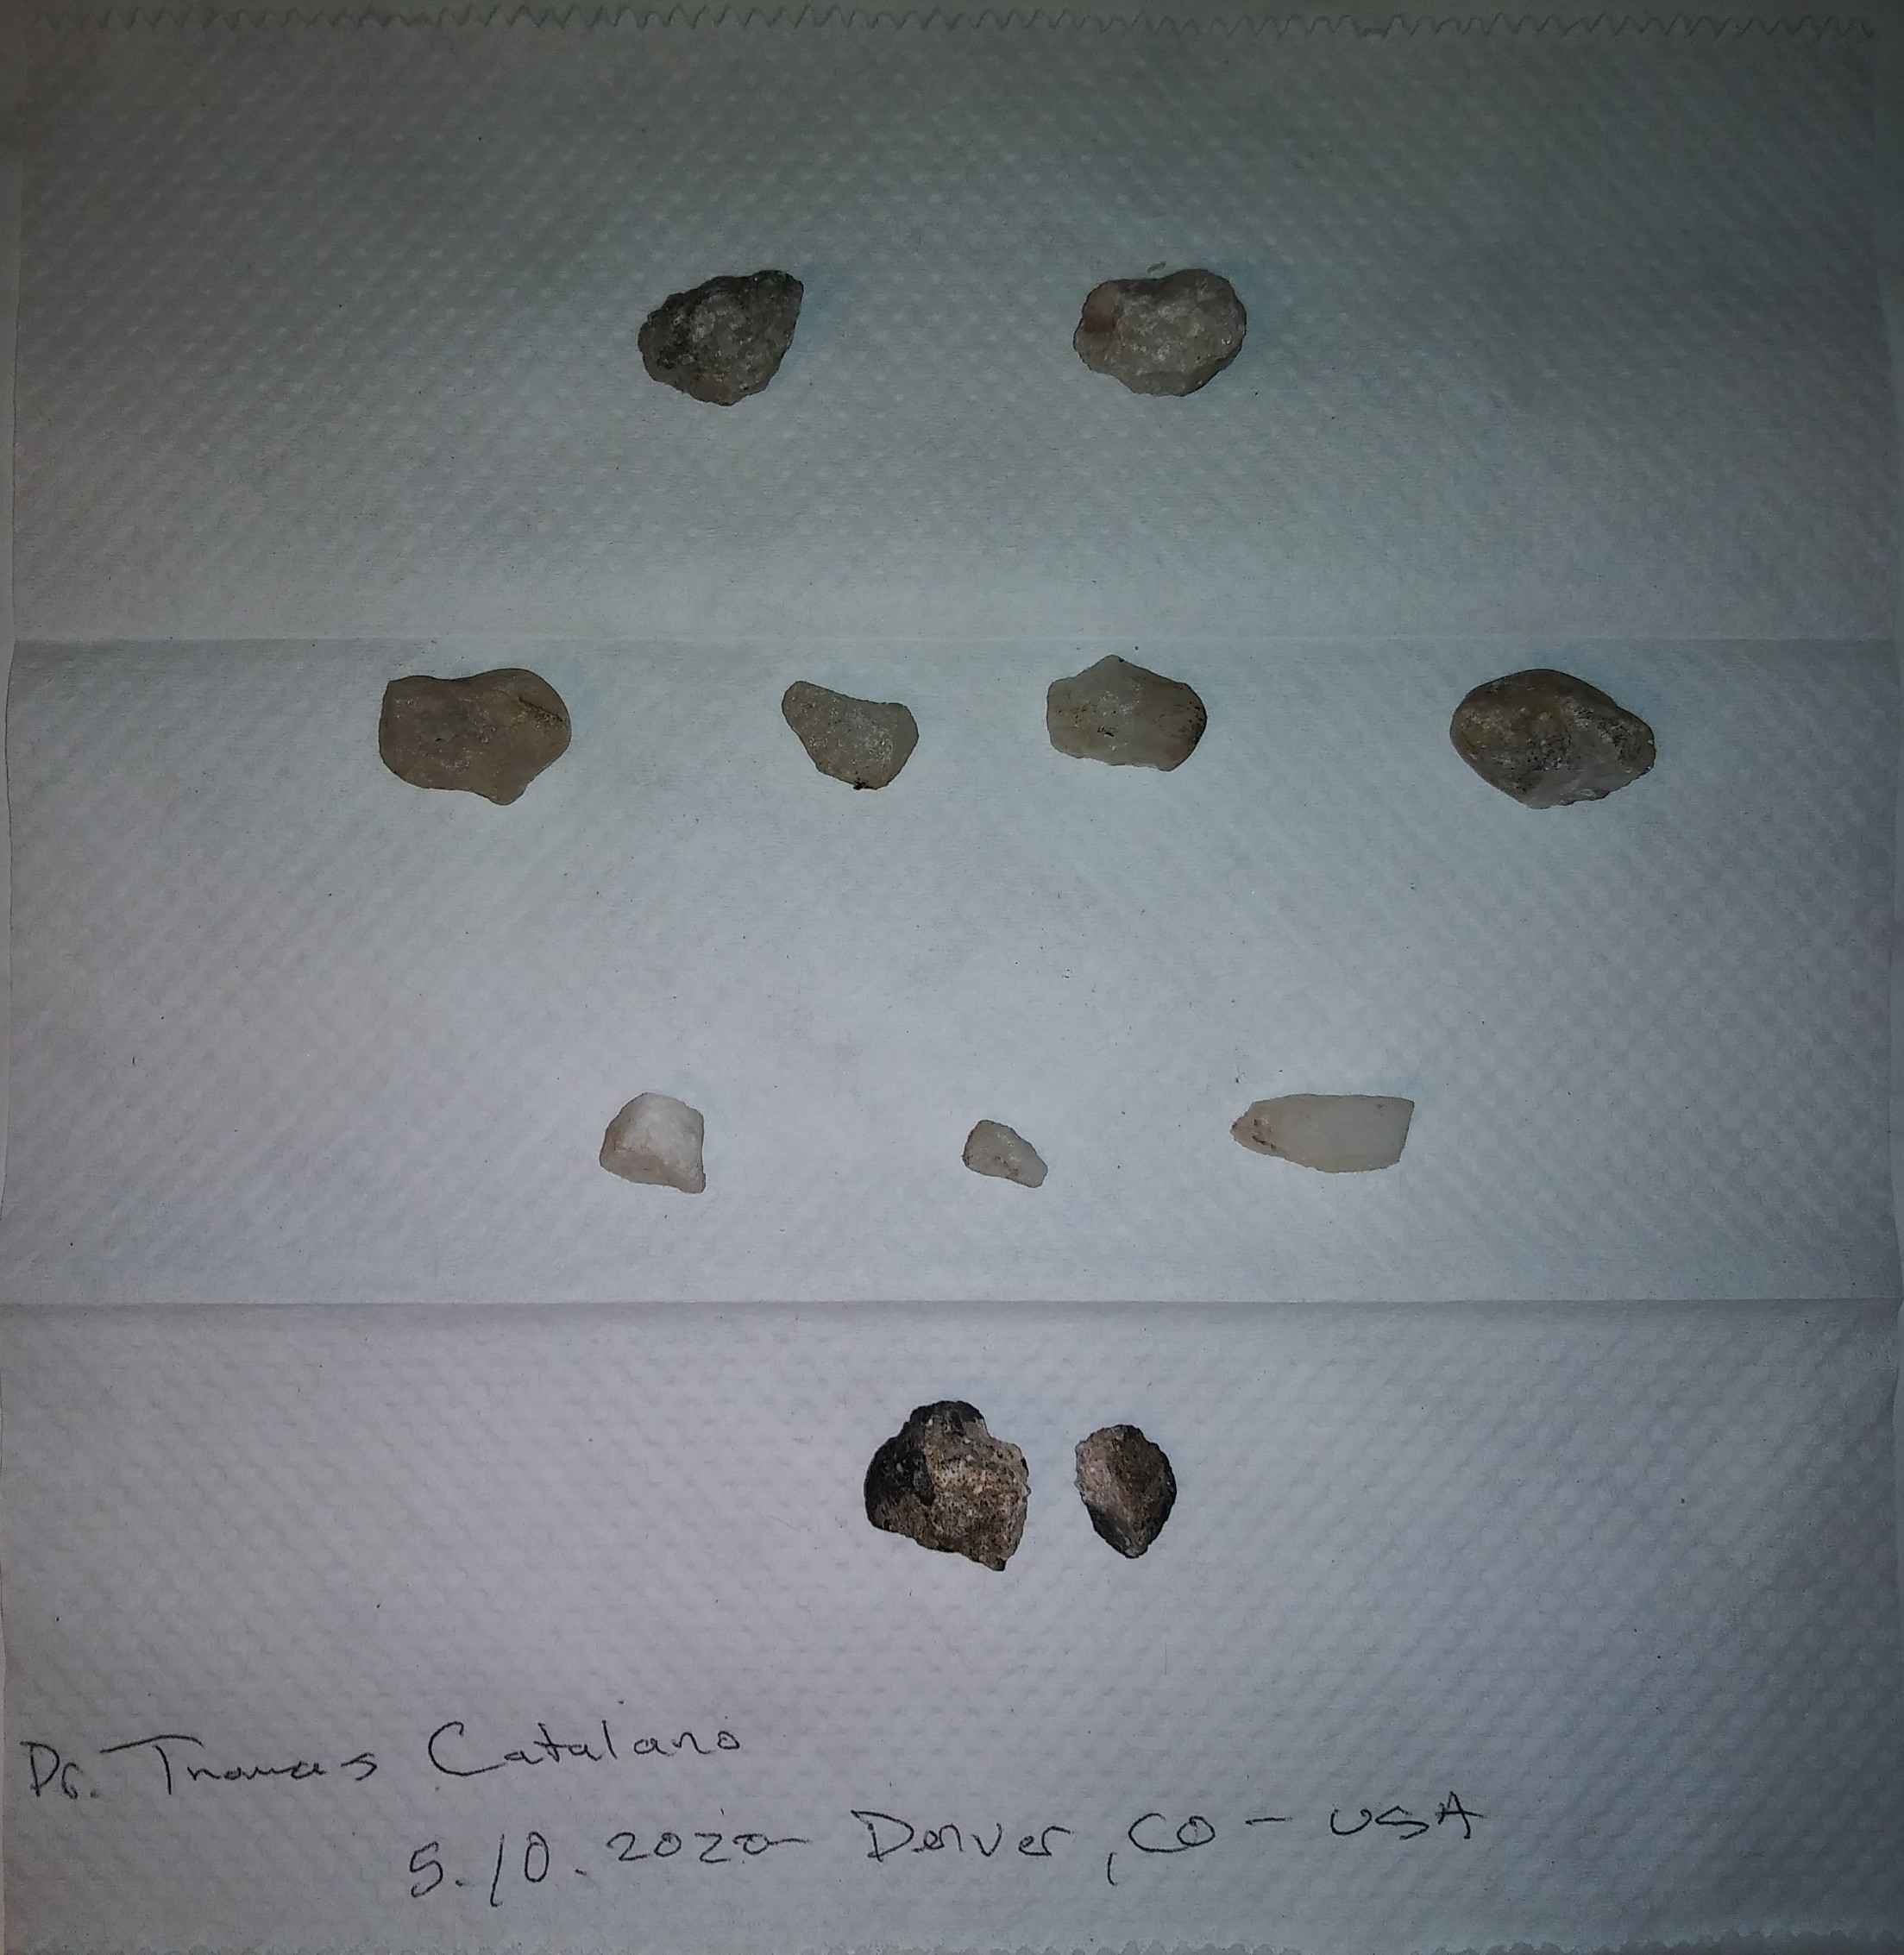 Dr. Thomas Catalano
5.10.2020 Denver, CO - USA